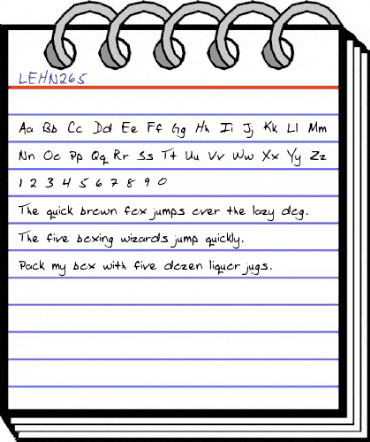 LEHN265
Aa Bb Cc Dd Ee Ff Gg Hh Ii Jj Kk Ll Mm
Nn Oo Pp Qq Rr Ss Tt Uu Vv Ww Xx Yy Zz
1 2 3 4 5 6 7 8 9 0
The quick brown fox jumps over the lazy dog.
The five boxing wizards jump quickly.
Pack my box with five dozen liquor jugs.